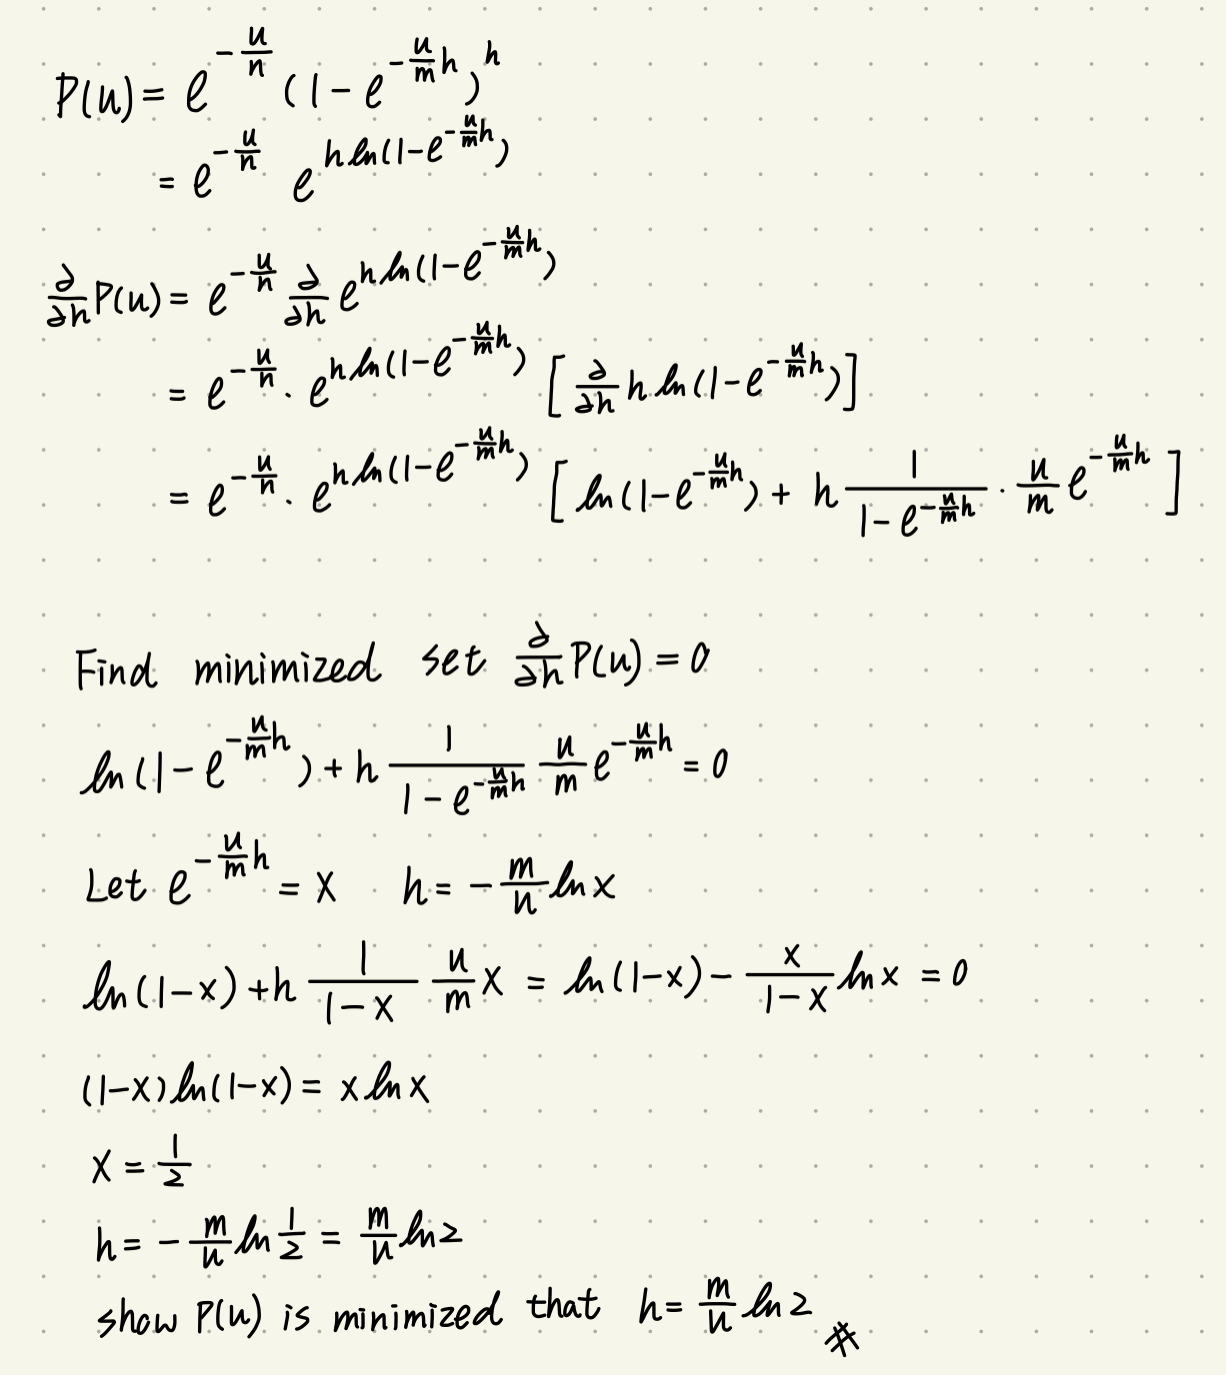 P(u) = e^{-\frac{u}{n}} (1 - e^{-\frac{u}{m}h})^h
= e^{-\frac{u}{n}} e^{h ln(1-e^{-\frac{u}{m}h})}
\frac{∂}{∂h} P(u) = e^{-\frac{u}{n}} \frac{∂}{∂h} e^{h ln(1-e^{-\frac{u}{m}h})}
= e^{-\frac{u}{n}} · e^{h ln(1-e^{-\frac{u}{m}h})} [ \frac{∂}{∂h} h ln(1-e^{-\frac{u}{m}h}) ]
= e^{-\frac{u}{n}} · e^{h ln(1-e^{-\frac{u}{m}h})} [ ln(1-e^{-\frac{u}{m}h}) + h \frac{1}{1-e^{-\frac{u}{m}h}} · \frac{u}{m} e^{-\frac{u}{m}h} ]
Find minimized set \frac{∂}{∂h} P(u) = 0
ln(1 - e^{-\frac{u}{m}h}) + h \frac{1}{1 - e^{-\frac{u}{m}h}} \frac{u}{m} e^{-\frac{u}{m}h} = 0
Let e^{-\frac{u}{m}h} = x h = -\frac{m}{u} ln x
ln(1-x) + h \frac{1}{1-x} \frac{u}{m} x = ln(1-x) - \frac{x}{1-x} ln x = 0
(1-x) ln(1-x) = x ln x
x = \frac{1}{2}
h = -\frac{m}{u} ln \frac{1}{2} = \frac{m}{u} ln 2
show P(u) is minimized that h = \frac{m}{u} ln 2 #